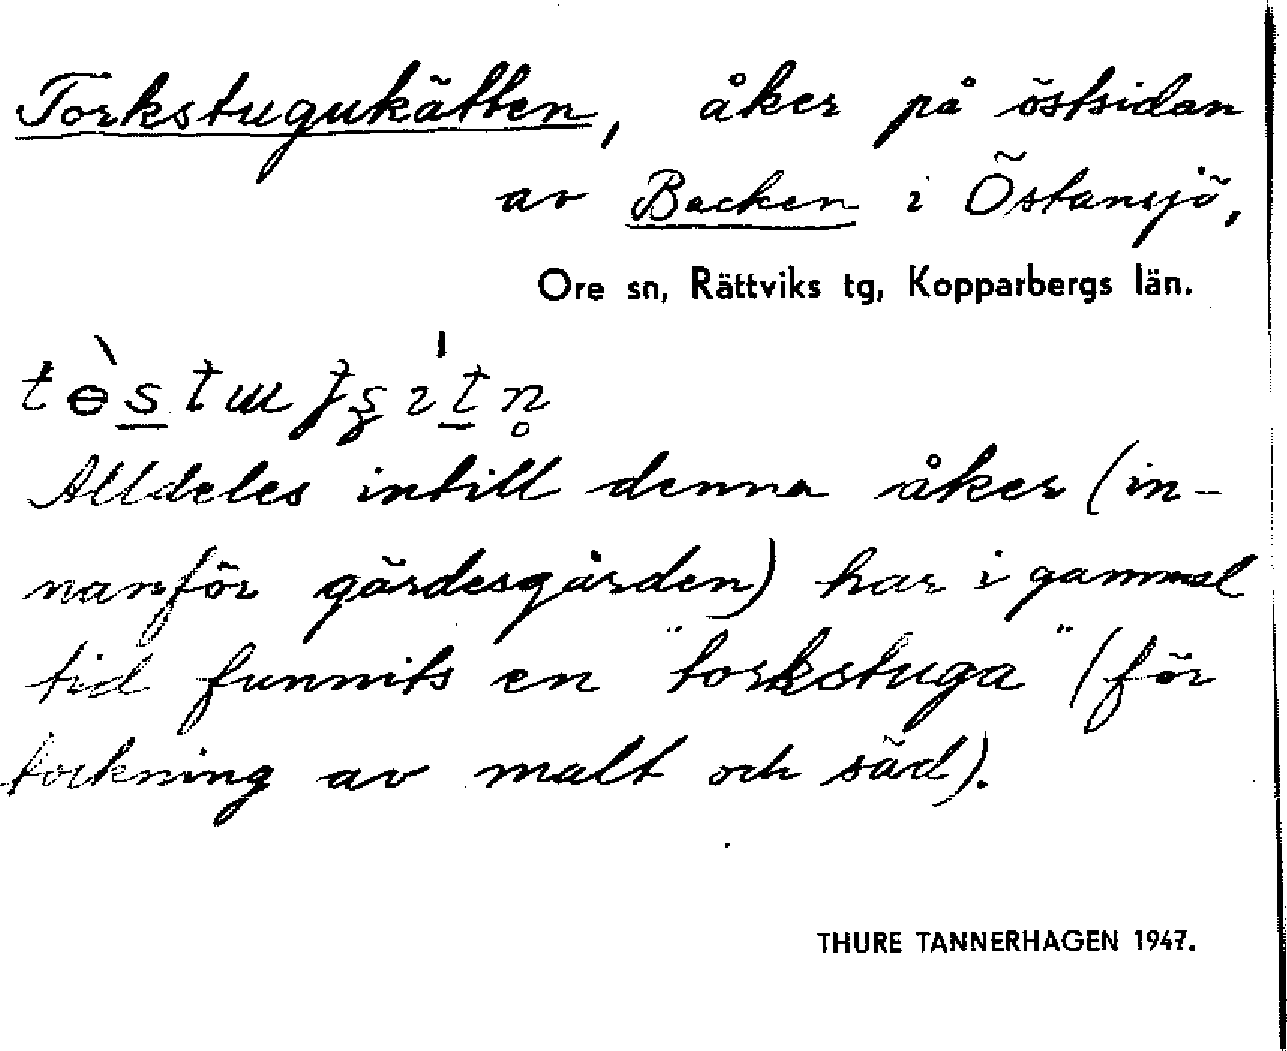 Torkstugukätten, åker på östsidan
av Backen i Östansjö,
Ore sn, Rättviks tg, Kopparbergs län.
Alldeles intill denna åker (in-
nanför gärdesgården) har i gammal
tid funnits en "torkstuga" (för
torkning av malt och säd).
THURE TANNERHAGEN 1947.